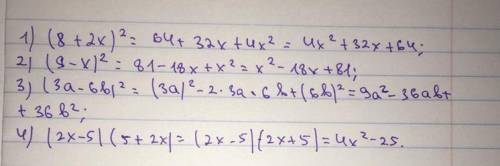 1) (8 + 2x)² = 64 + 32x + 4x² = 4x² + 32x + 64;
2) (9 - x)² = 81 - 18x + x² = x² - 18x + 81;
3) (3a - 6b)² = (3a)² - 2 · 3a · 6b + (6b)² = 9a² - 36ab +
+ 36b²;
4) (2x - 5)(5 + 2x) = (2x - 5)(2x + 5) = 4x² - 25.